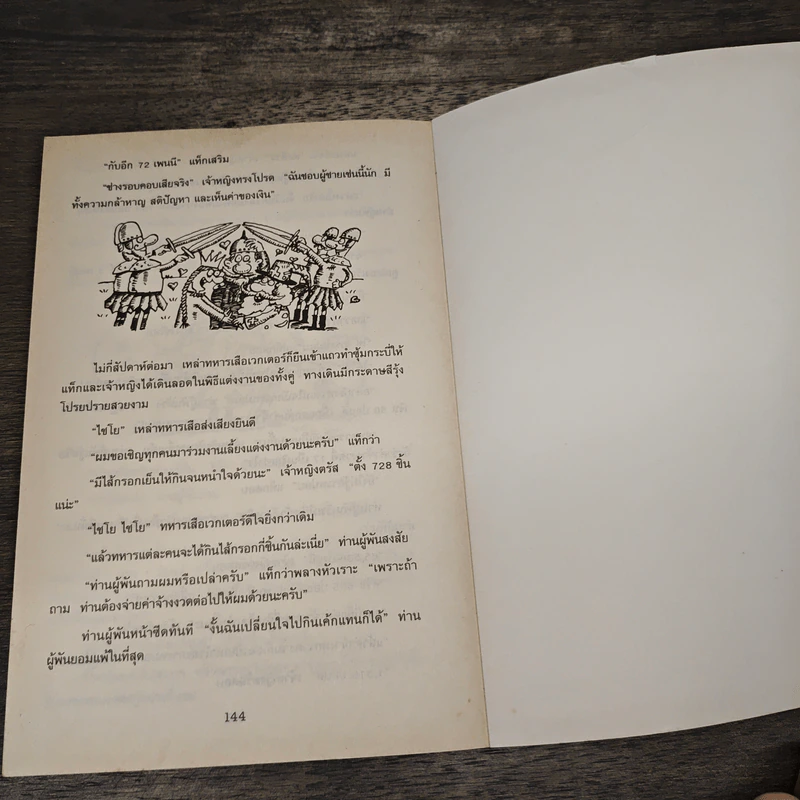 "กับอีก 72 เพนนี" แท็กเสริม
"ช่างรอบคอบเสียจริง" เจ้าหญิงทรงโปรด "ฉันชอบผู้ชายเช่นนี้นัก มี
ทั้งความกล้าหาญ สติปัญหา และเห็นค่าของเงิน"
ไม่กี่สัปดาห์ต่อมา เหล่าทหารเสือเวกเตอร์ก็ยืนเข้าแถวทำซุ้มกระบี่ให้
แท็กและเจ้าหญิงได้เดินลอดในพิธีแต่งงานของทั้งคู่ ทางเดินมีกระดาษสีรุ้ง
โปรยปรายสวยงาม
"ไชโย" เหล่าทหารเสือส่งเสียงยินดี
"ผมขอเชิญทุกคนมาร่วมงานเลี้ยงแต่งงานด้วยนะครับ" แท็กว่า
"มีไส้กรอกเย็นให้กินจนหนำใจด้วยนะ" เจ้าหญิงตรัส "ตั้ง 728 ชิ้น
แน่ะ"
"ไชโย ไชโย" ทหารเสือเวกเตอร์ดีใจยิ่งกว่าเดิม
"แล้วทหารแต่ละคนจะได้กินไส้กรอกกี่ชิ้นกันล่ะเนี่ย" ท่านผู้พันสงสัย
"ท่านผู้พันถามผมหรือเปล่าครับ" แท็กว่าพลางหัวเราะ "เพราะถ้า
ถาม ท่านต้องจ่ายค่าจ้างงวดต่อไปให้ผมด้วยนะครับ"
ท่านผู้พันหน้าซีดทันที "งั้นฉันเปลี่ยนใจไปกินเค้กแทนก็ได้" ท่าน
ผู้พันยอมแพ้ในที่สุด
144